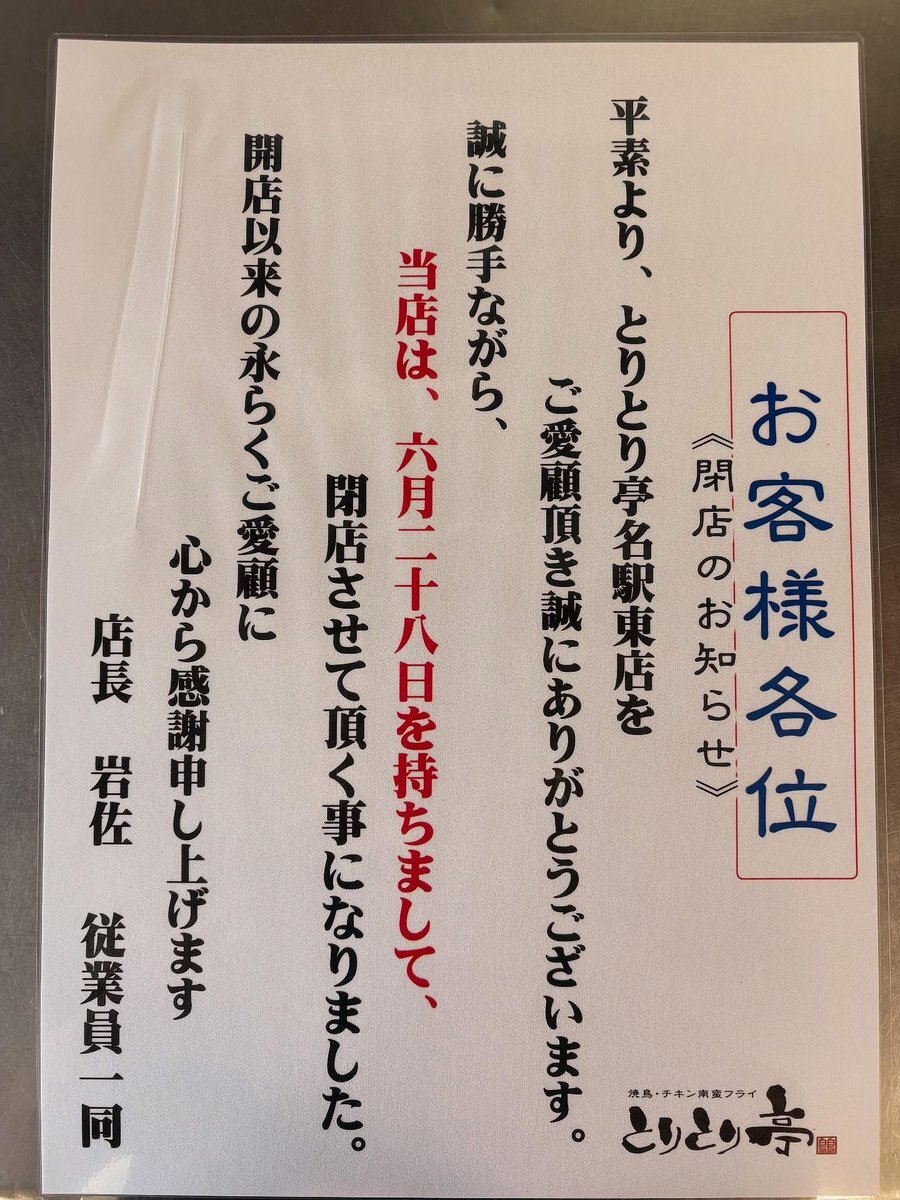 お客様各位
《閉店のお知らせ》
平素より、とりとり亭名駅東店を
ご愛顧頂き誠にありがとうございます。
誠に勝手ながら、
当店は、六月二十八日を持ちまして、
閉店させて頂く事になりました。
開店以来の永らくご愛顧に
心から感謝申し上げます
店長 岩佐 従業員一同
焼鳥・チキン南蛮フライ
とりとり亭